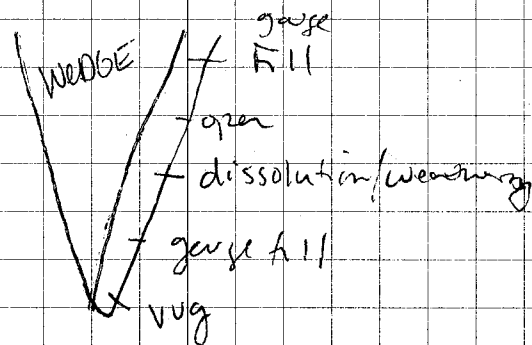 gouge
WEDGE
fill
open
dissolution/weathering
gouge fill
vug